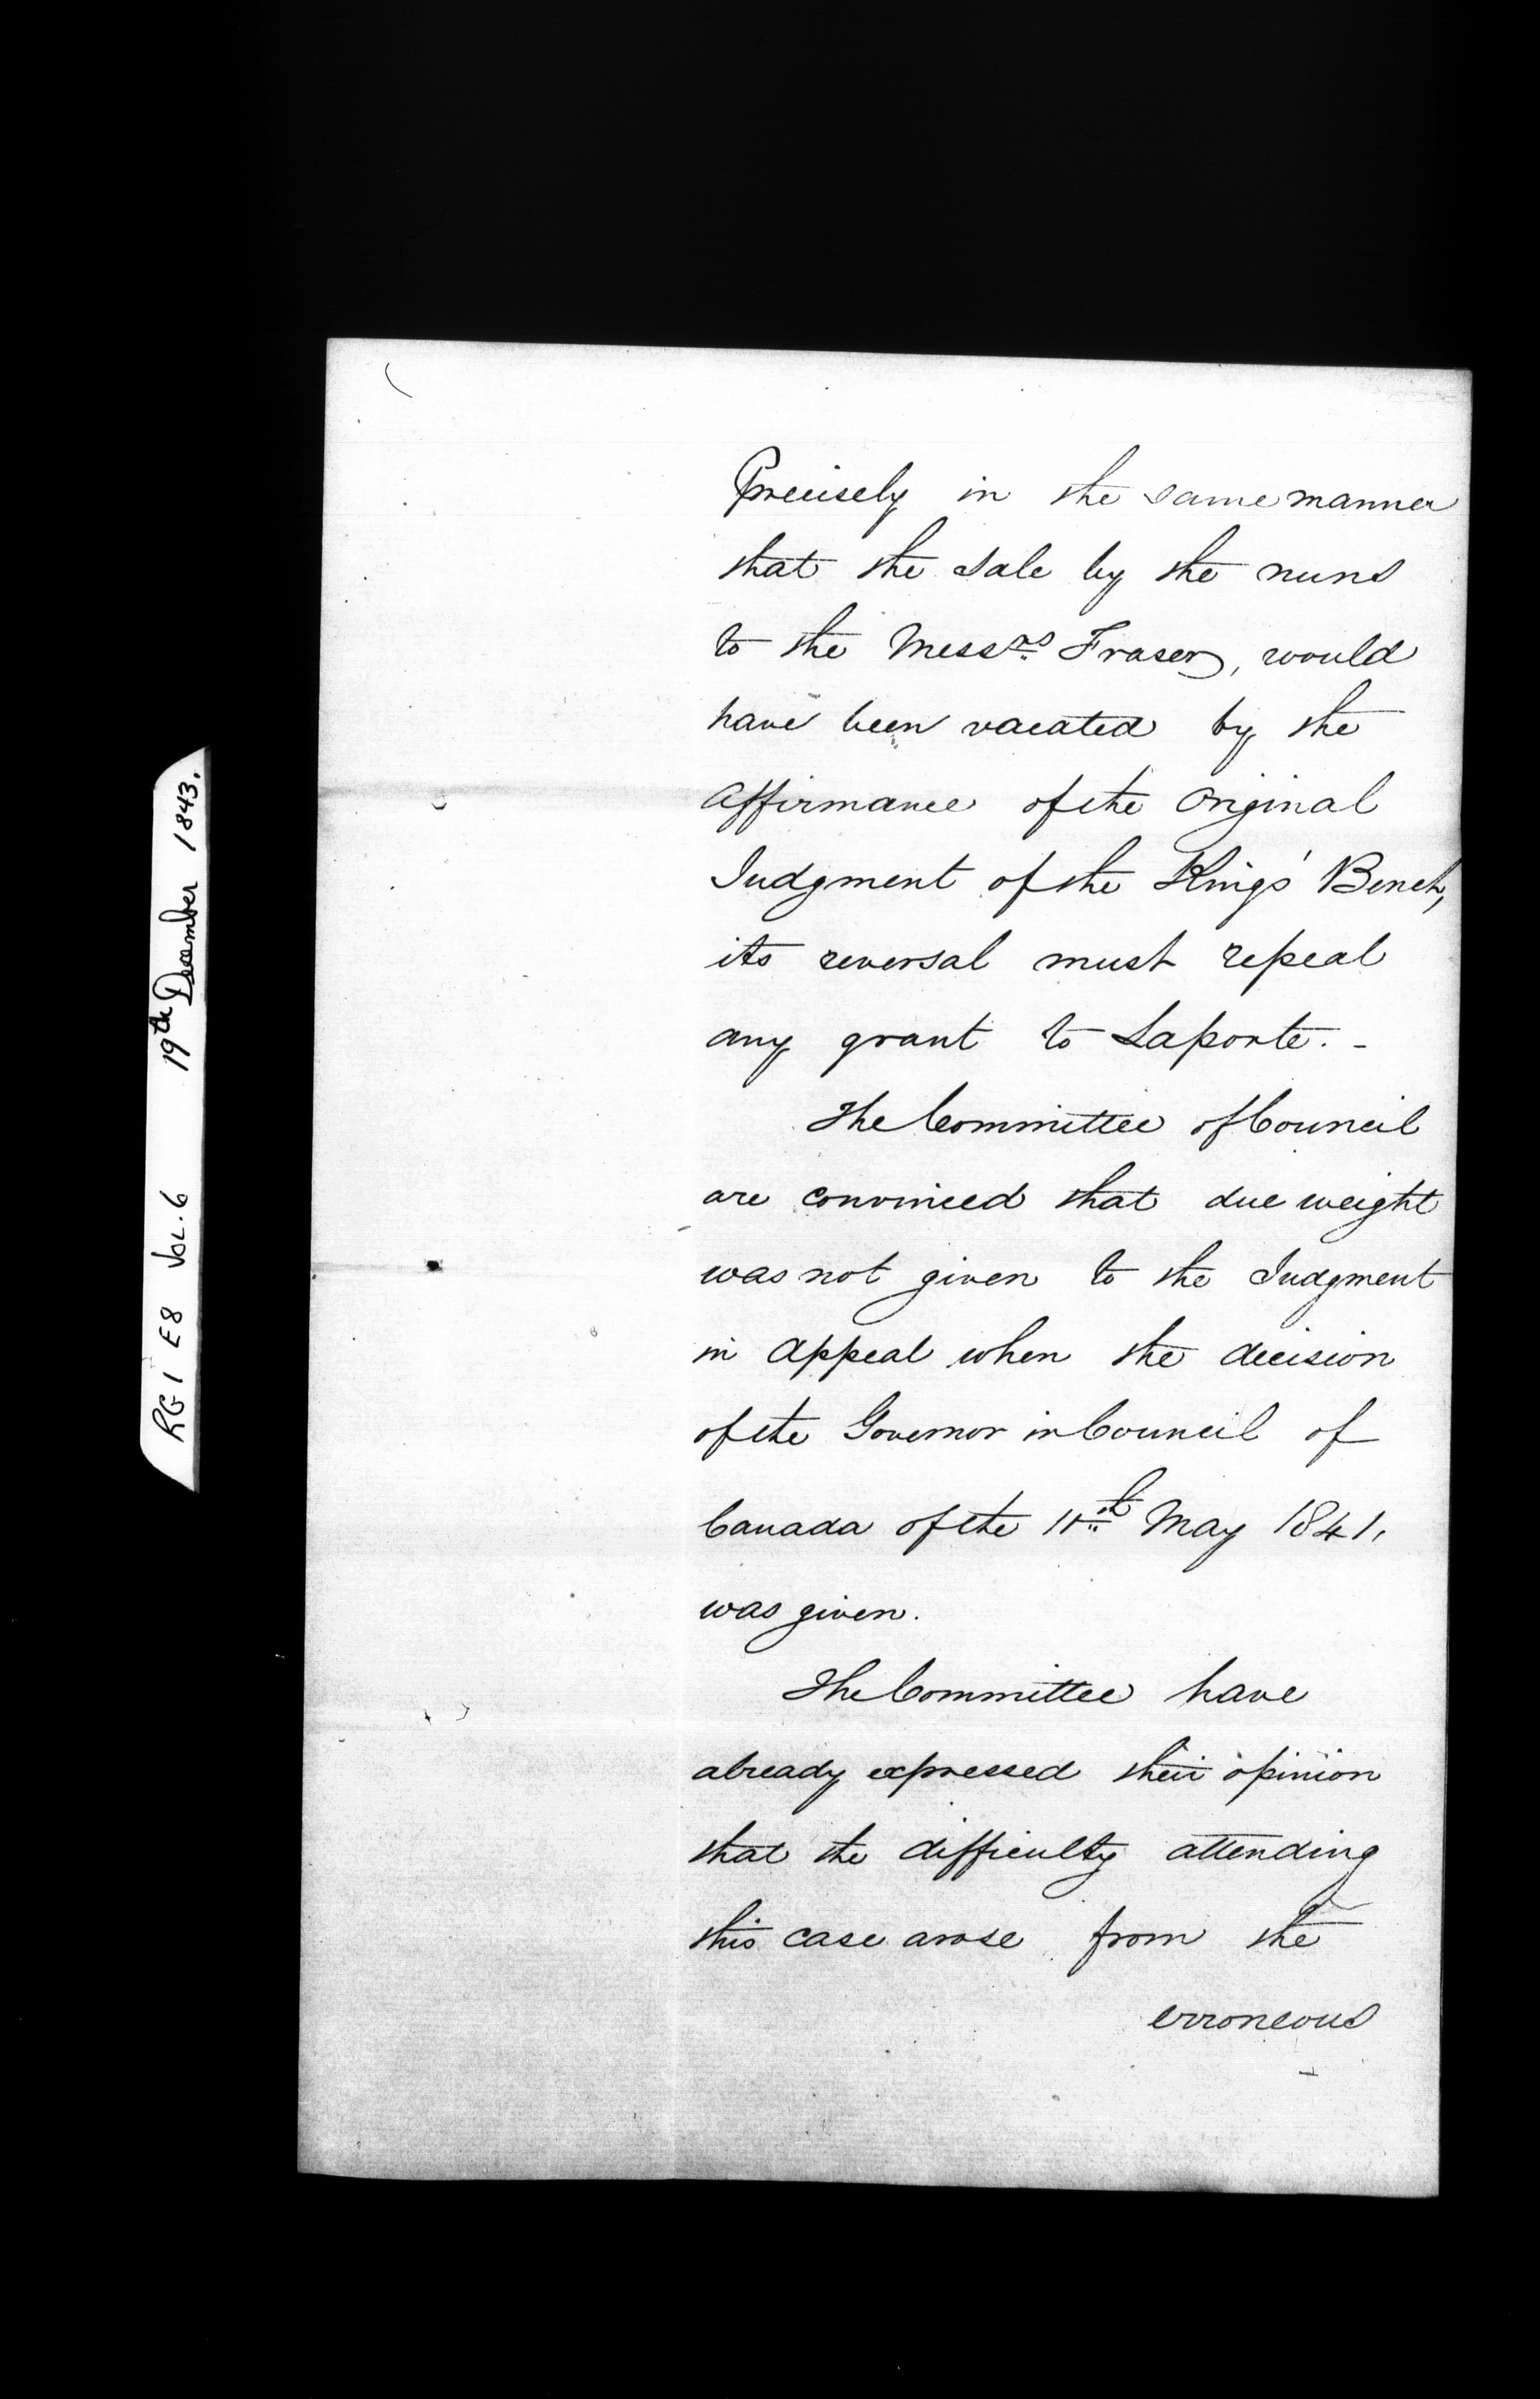 RG 1 E8 Vol. 6 19th December 1843.
Precisely in the same manner
that the Sale by the nuns
to the Messrs Fraser, would
have been vacated by the
affirmance of the Original
Judgment of the Kings' Bench,
its reversal must repeal
any grant to Laporte. -
The Committee of Council
are convinced that due weight
was not given to the Judgment
in Appeal when the decision
of the Governor in Council of
Canada of the 11th May 1841,
was given.
The Committee have
already expressed their opinion
that the difficulty attending
this case arose from the
erroneous